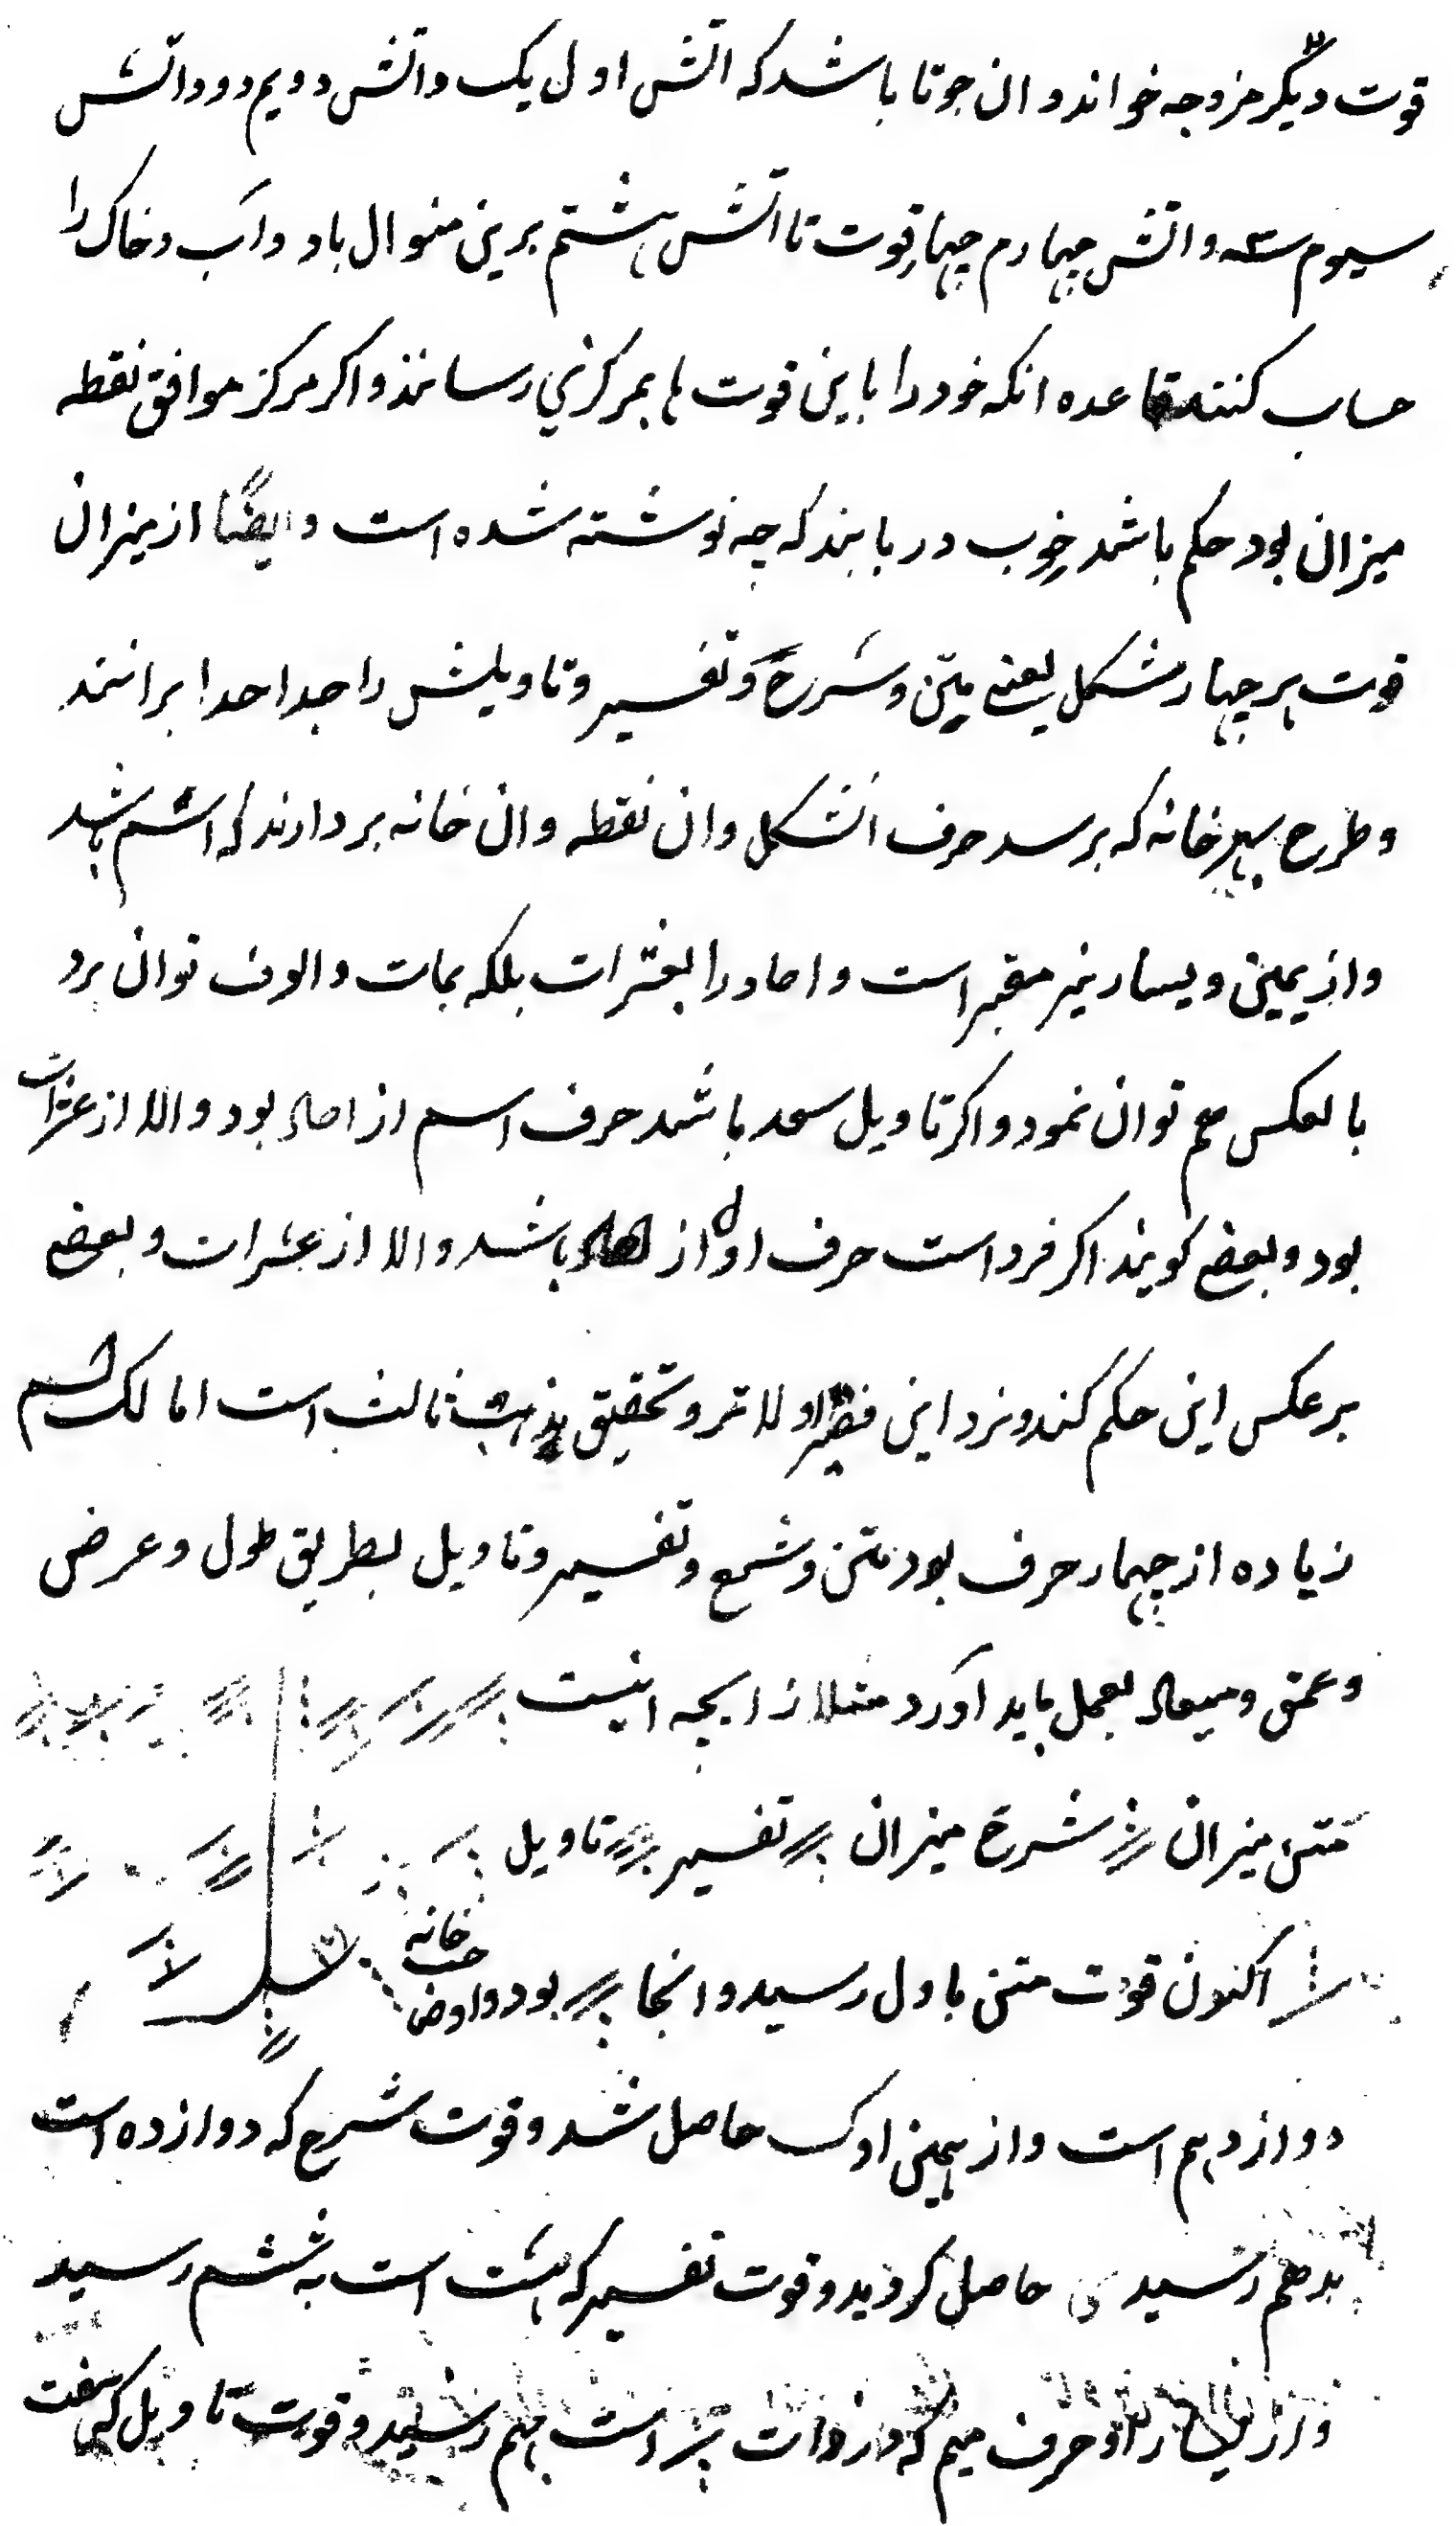 قوت دیگر مزوجه خوانند و ان جوتا باشد که اتش اول یک و اتش دویم دو و اتش
سیوم سه و اتش چهارم چهار قوت تا اتش هشتم برین منوال باد و آب و خاک را
حساب کنند قاعده انکه خود را باین قوت ها بمرکزی رسانند و اکر مرکز موافق نقطه
میزان بود حکم باشد خوب دریابند که چه نوشته شده است و ایضًا از میزان
قوت هر چهار شکل یعنی متن و شرح و تفسیر و تاویلش را جدا جدا برانند
و طرح بهر خانه که برسد حرف انشکل و ان نقطه و ان خانه بردارند که اسم باشد
و از یمین و یسار نیز معتبر است و احاد را بعشرات بلکه بمات و الوف توان برد
بالعکس هم توان نمود و اکر تاویل سعد باشد حرف اسم از احاد بود و الا از عشرات
بود و بعضی کویند اکر فرد است حرف اول از احاد باشد و الا از عشرات و بعضی
برعکس این حکم کنند و نزد این فقیر اولاتر و تحقیق مذهب ثالث است اما لک اسم
زیاده از چهار حرف بود متن و شرح و تفسیر و تاویل بطریق طول و عرض
و عمق و میعاد بعمل باید آورد مثلا زایچه اینست
متن میزان شرح میزان تفسیر تاویل
اکنون قوت متن باول رسید و انجا بود و او خانه
دوازدهم است و از همین اوک حاصل شد و قوت شرح که دوازده است
بدهم رسید ی حاصل کردید و قوت تفسیر که هشت است به ششم رسید
و از یسار او حرف میم که در ذات است بهم رسید و قوت تاویل که هفت